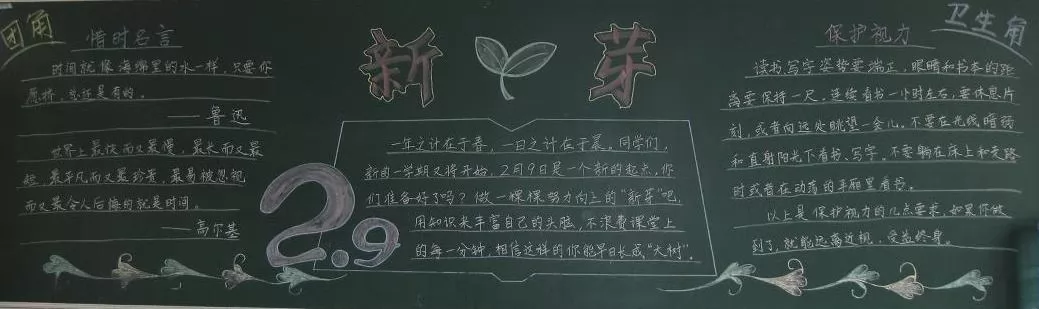 团角
惜时名言
时间就像海绵里的水一样，只要你
愿挤，总还是有的。
——鲁迅
世界上最快而又最慢，最长而又最
短，最平凡而又最珍贵，最易被忽视
而又最令人后悔的就是时间。
——高尔基
新芽
2.9
一年之计在于春，一日之计在于晨。同学们，
新的一学期又将开始，2月9日是一个新的起点，你
们准备好了吗？做一棵棵努力向上的“新芽”吧，
用知识来丰富自己的头脑，不浪费课堂上
的每一分钟，相信这样的你能早日长成“大树”。
卫生角
保护视力
读书、写字姿势要端正，眼睛和书本的距
离要保持一尺。连续看书一小时左右，要休息片
刻，或者向远处眺望一会儿。不要在光线暗弱
和直射阳光下看书、写字。不要躺在床上和走路
时或者在动荡的车厢里看书。
以上是保护视力的几点要求，如果你做
到了，就能远离近视，受益终身。